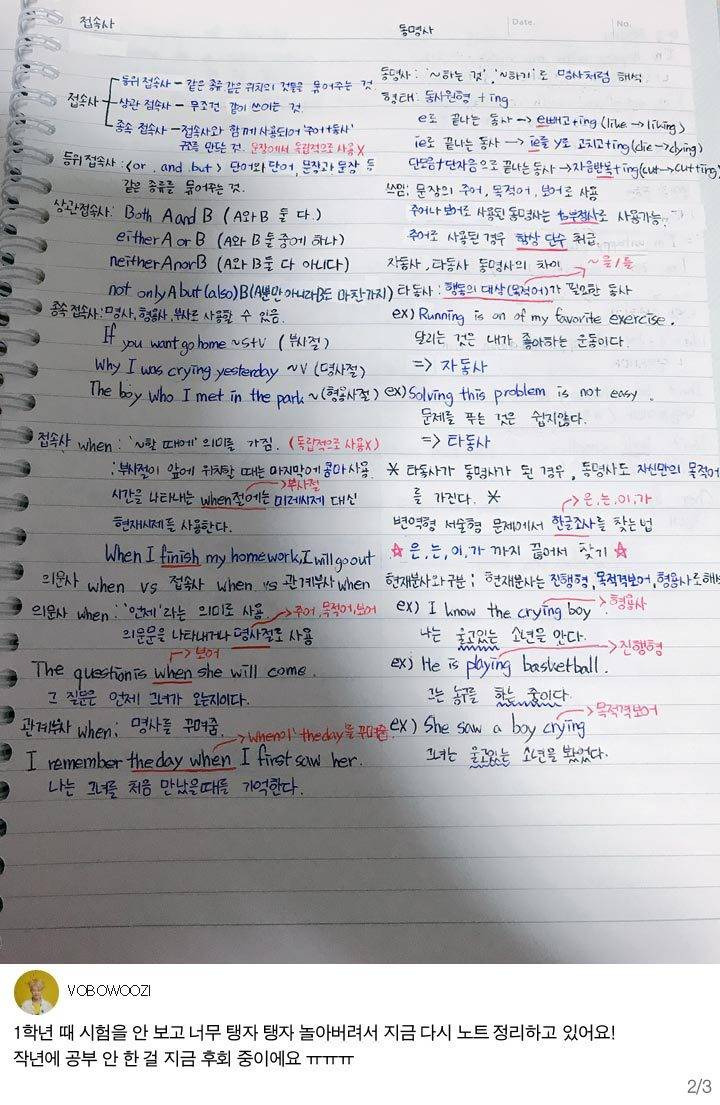 접속사
접속사
등위 접속사 - 같은 종류 같은 위치의 것들을 묶어주는 것
상관 접속사 - 무조건 같이 쓰이는 것
종속 접속사 - 접속사와 함께 사용되어 '주어+동사'
구조를 만드는 것. 문장에서 독립적으로 사용 X
등위 접속사: <or, and, but> 단어와 단어, 문장과 문장 등
같은 종류를 묶어주는 것.
상관접속사: Both A and B (A와 B 둘 다.)
either A or B (A와 B 둘 중에 하나)
neither A nor B (A와 B 둘 다 아니다)
not only A but (also) B (A뿐만 아니라 B도 마찬가지)
종속 접속사: 명사, 형용사, 부사로 사용할 수 있음.
If you want go home ~ S+V (부사절)
Why I was crying yesterday ~V (명사절)
The boy who I met in the park ~ (형용사절)
접속사 when: '~할 때에' 의미를 가짐. (독립적으로 사용X)
: 부사절이 앞에 위치할 때는 마지막에 콤마 사용.
부사절
시간을 나타내는 when절에는 미래시제 대신
현재시제를 사용한다.
When I finish my homework, I will go out
의문사 when vs 접속사 when vs 관계부사 when
의문사 when: '언제'라는 의미로 사용.
주어, 목적어, 보어
의문문을 나타내거나 명사절로 사용
보어
The question is when she will come.
그 질문은 언제 그녀가 오는지이다.
관계부사 when; 명사를 꾸며줌.
when이 the day를 꾸며줌
I remember the day when I first saw her.
나는 그녀를 처음 만났을때를 기억한다.
Date.
No.
동명사
동명사: '~하는 것', '~하기'로 명사처럼 해석.
형태: 동사원형 + ing
e로 끝나는 동사 → e빼고+ing (like → liking)
ie로 끝나는 동사 → ie를 y로 고치고+ing (die → dying)
단모음+단자음으로 끝나는 동사 → 자음반복+ing (cut → cutting)
쓰임; 문장의 주어, 목적어, 보어로 사용
주어나 보어로 사용된 동명사는 to부정사로 사용가능.
주어로 사용된 경우 항상 단수 취급
자동사, 타동사 동명사의 차이
~을/를
타동사: 행동의 대상(목적어)가 필요한 동사
ex) Running is on of my favorite exercise.
달리는 것은 내가 좋아하는 운동이다.
=> 자동사
ex) Solving this problem is not easy.
문제를 푸는 것은 쉽지않다.
=> 타동사
* 타동사가 동명사가 된 경우, 동명사도 자신만의 목적어
를 가진다. *
은, 는, 이, 가
번역형 서술형 문제에서 한글조사를 찾는 법
☆ 은, 는, 이, 가 까지 끊어서 찾기 ☆
현재분사와 구분; 현재분사는 진행형, 목적격보어, 형용사로 해석
ex) I know the crying boy.
형용사
나는 울고있는 소년을 안다.
진행형
ex) He is playing basketball.
그는 농구를 하는 중이다.
목적격보어
ex) She saw a boy crying
그녀는 울고있는 소년을 봤었다.
VOBOWOOZI
1학년 때 시험을 안 보고 너무 탱자 탱자 놀아버려서 지금 다시 노트 정리하고 있어요!
작년에 공부 안 한 걸 지금 후회 중이에요 ㅠㅠㅠ
2/3